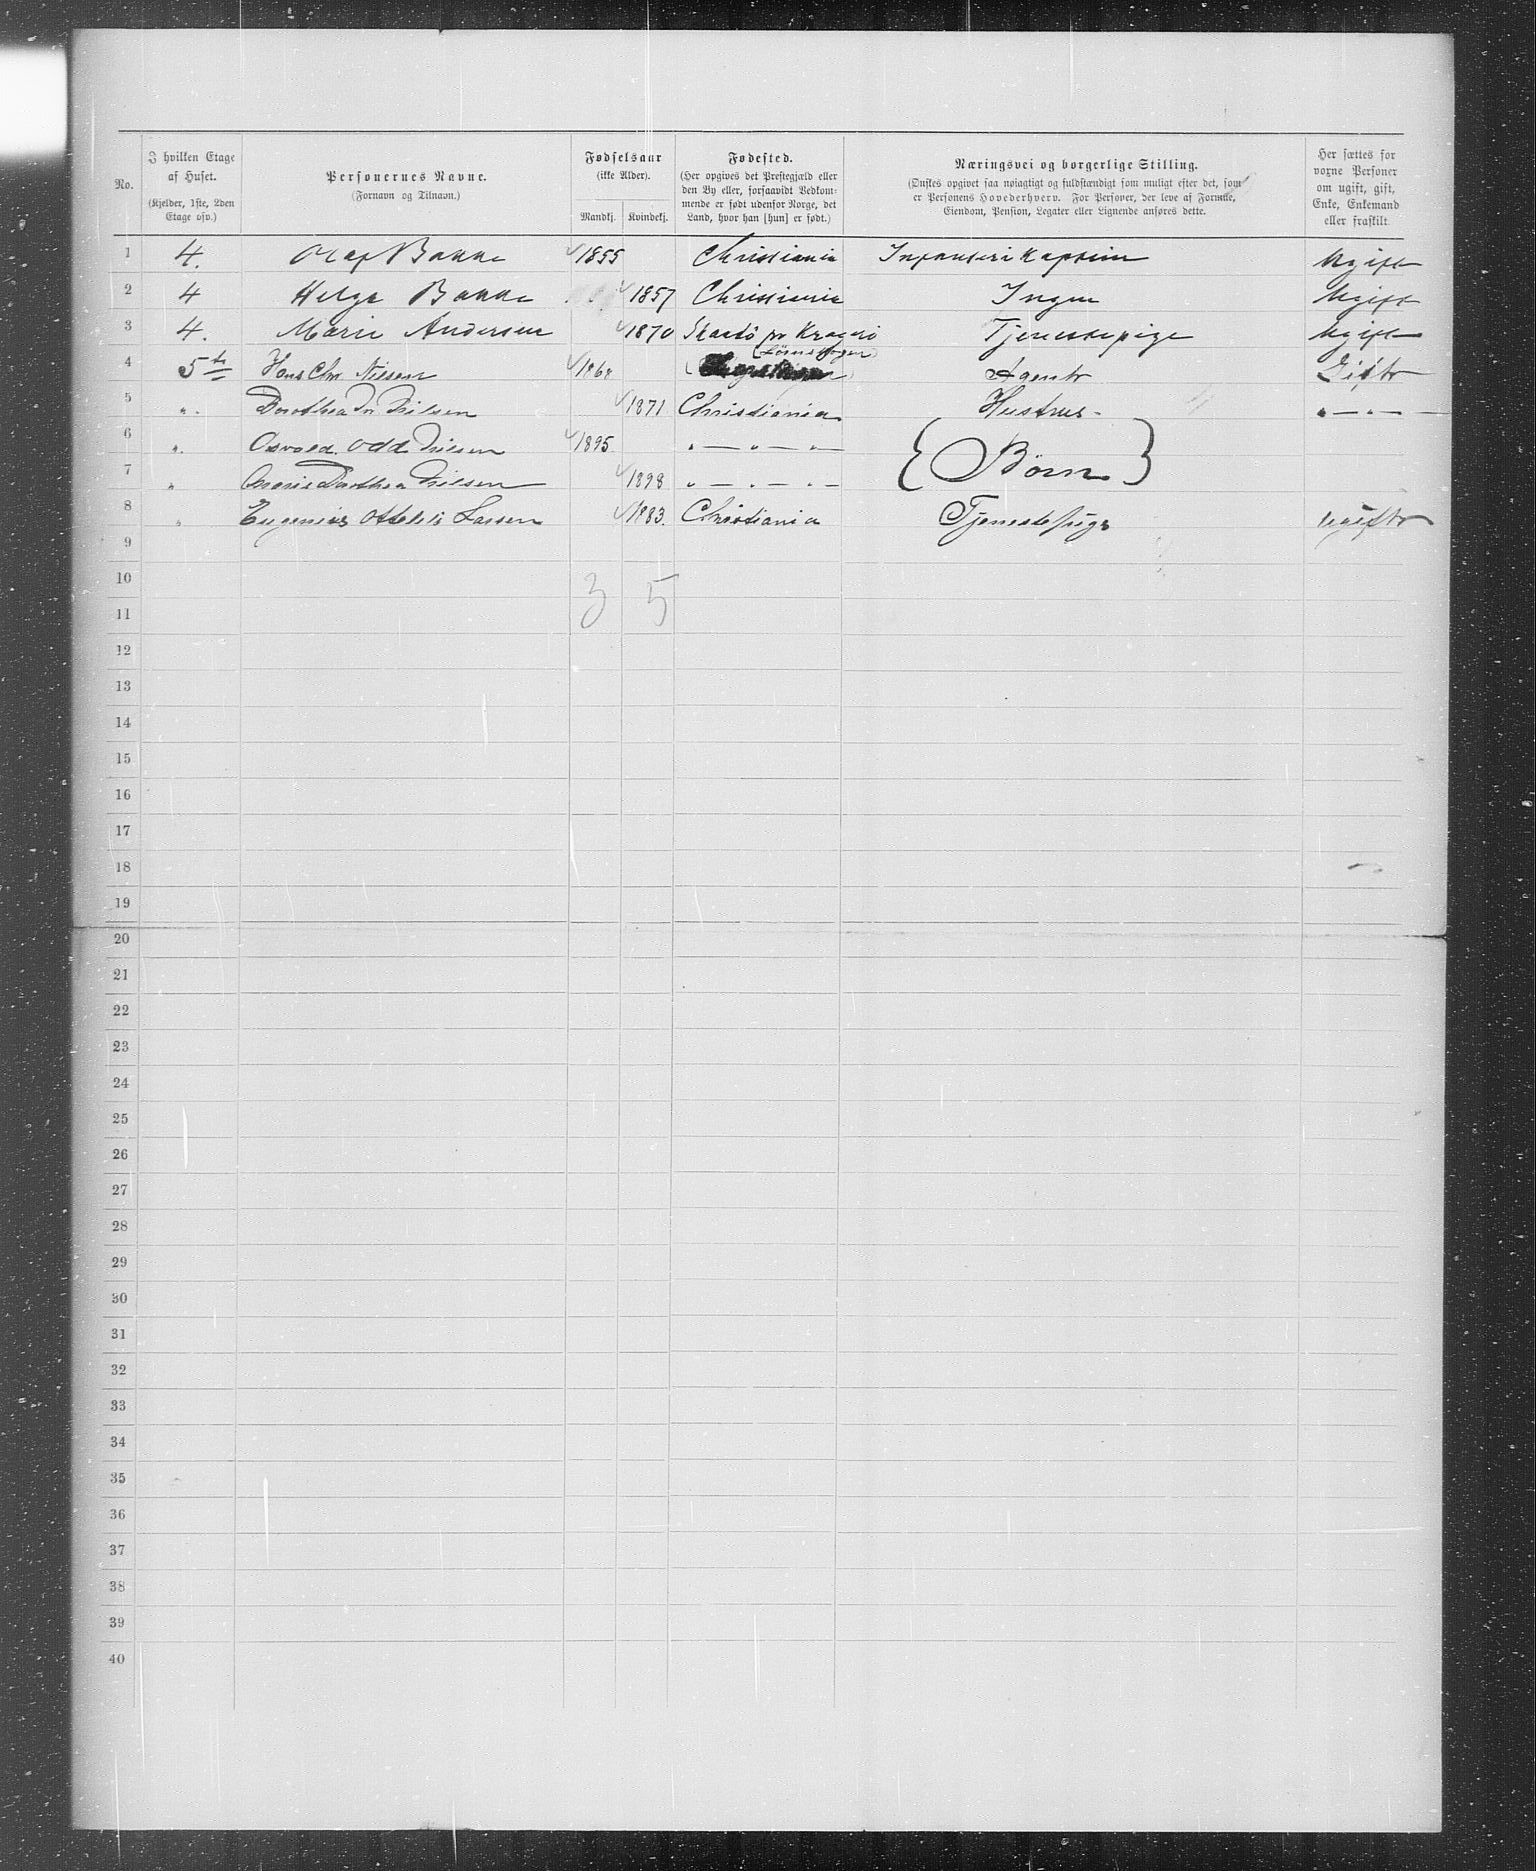 No.
I hvilken Etage af Huset.
(Kjelder, 1ste, 2den Etage osv.)
Personernes Navne.
(Fornavn og Tilnavn.)
Fødselsaar
(ikke Alder).
Mandkj. Kvindekj.
Fødested.
(Her opgives det Prestegjæld eller
den By eller, forsaavidt Vedkom-
mende er født udenfor Norge, det
Land, hvor han [hun] er født.)
Næringsvei og borgerlige Stilling.
(Ønskes opgivet saa nøiagtigt og fuldstændigt som muligt efter det, som
er Personens Hovederhverv. For Personer, der leve af Formue,
Eiendom, Pension, Legater eller Lignende anføres dette.
Her sættes for
voxne Personer
om ugift, gift,
Enke, Enkemand
eller fraskilt.
1 4. Olaf Bakke 1855 Christiania Infanterikaptein Ugift
2 4 Helga Bakke 1857 Christiania Ingen Ugift
3 4. Marie Andersen 1870 Skaatö pr Kragerö Tjenestepige Ugift
4 5te Hans Chr. Nilsen Agent Gift
5 ". Dorothea Nilsen 1871 Christiania Hustru - " — " —
6 ". Osvald Odd Nilsen 1895 " — " — " —
{ Børn }
7 " Dorothea Nilsen 1898 " — " — " —
8 " Lassen 1883. Christiania Tjenestepige ugift
9
10
3 5
11
12
13
14
15
16
17
18
19
20
21
22
23
24
25
26
27
28
29
30
31
32
33
34
35
36
37
38
39
40